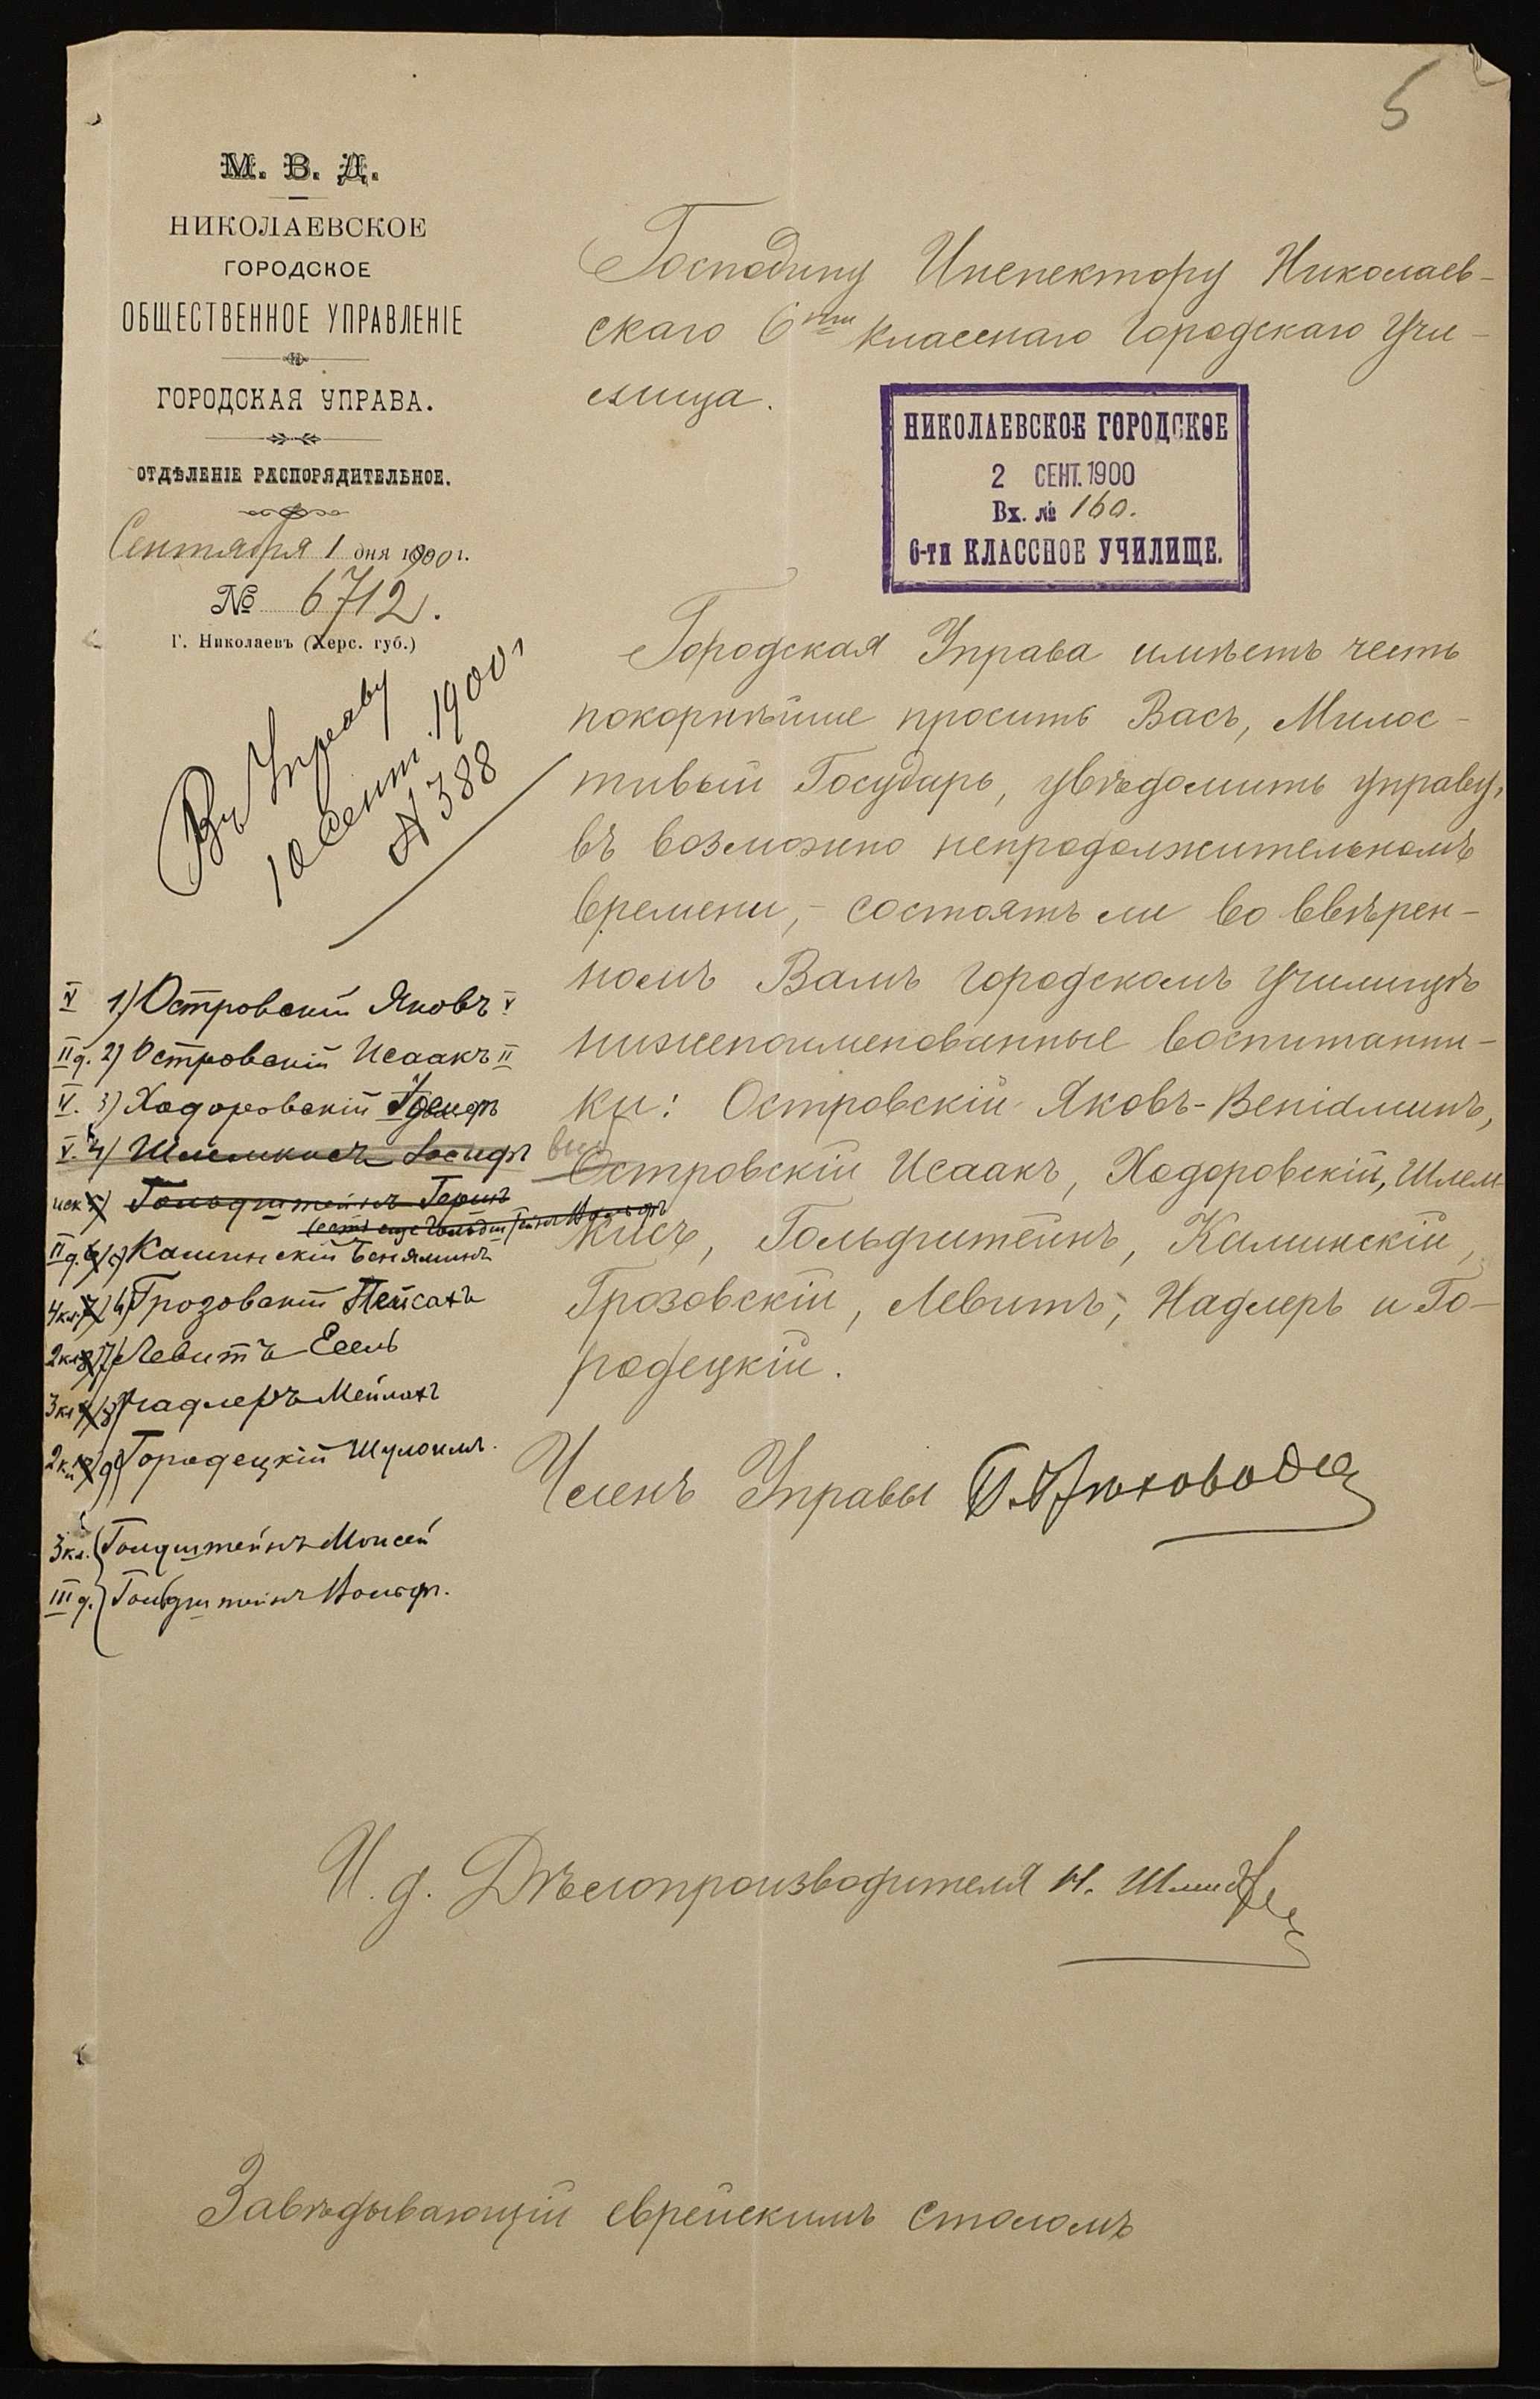 5
М. В. Д.
НИКОЛАЕВСКОЕ
ГОРОДСКОЕ
ОБЩЕСТВЕННОЕ УПРАВЛЕНІЕ
ГОРОДСКАЯ УПРАВА.
ОТДѢЛЕНІЕ РАСПОРЯДИТЕЛЬНОЕ.
Сентября 1 дня 1900 г.
№ 6712.
Г. Николаевъ (Херс. губ.)
Въ Управу
10 Сент. 1900 г.
№ 388
Господину Инспектору Николаев-
скаго 6ти класснаго городскаго Учи-
лища.
НИКОЛАЕВСКОЕ ГОРОДСКОЕ
2 СЕНТ. 1900
Вх. № 160.
6-ТИ КЛАССНОЕ УЧИЛИЩЕ.
Городская Управа имѣетъ честь
покорнѣйше просить Васъ, Милос-
тивый Государь, увѣдомить управу,
въ возможно непродолжительномъ
времени,- состоятъ ли во ввѣрен-
номъ Вамъ городскомъ Училищѣ
нижепоименованные воспитанни-
ки: Островскій Яковъ-Веніаминъ,
Островскій Исаакъ, Ходоровскій, Шлем-
кисъ, Гольдштейнъ, Каминскій,
Грозовскій, Левитъ, Надлеръ и Го-
родецкій.
Членъ Управы
И. д. Дѣлопроизводителя Н.
Завѣдывающій еврейскимъ столомъ
V 1) Островскій Яковъ V
II д. 2) Островскій Исаакъ II
V. 3) Ходоровскій Іосифъ
V. 4) Шлемкисъ Іосифъ
5) Гольдштейнъ
(есть еще Гольдштейнъ Вольфъ
II д. 6) Каминскій Беньяминъ
4 кл. 7) 6) Грозовскій Пейсахъ
2 кл. 8) 7) Левитъ Есель
3 кл. 9) 8) Надлеръ Мейлахъ
2 кл. 10) 9) Городецкій Шулоимъ.
3 кл. Гольдштейнъ Моисей
III д. Гольдштейнъ Вольфъ.